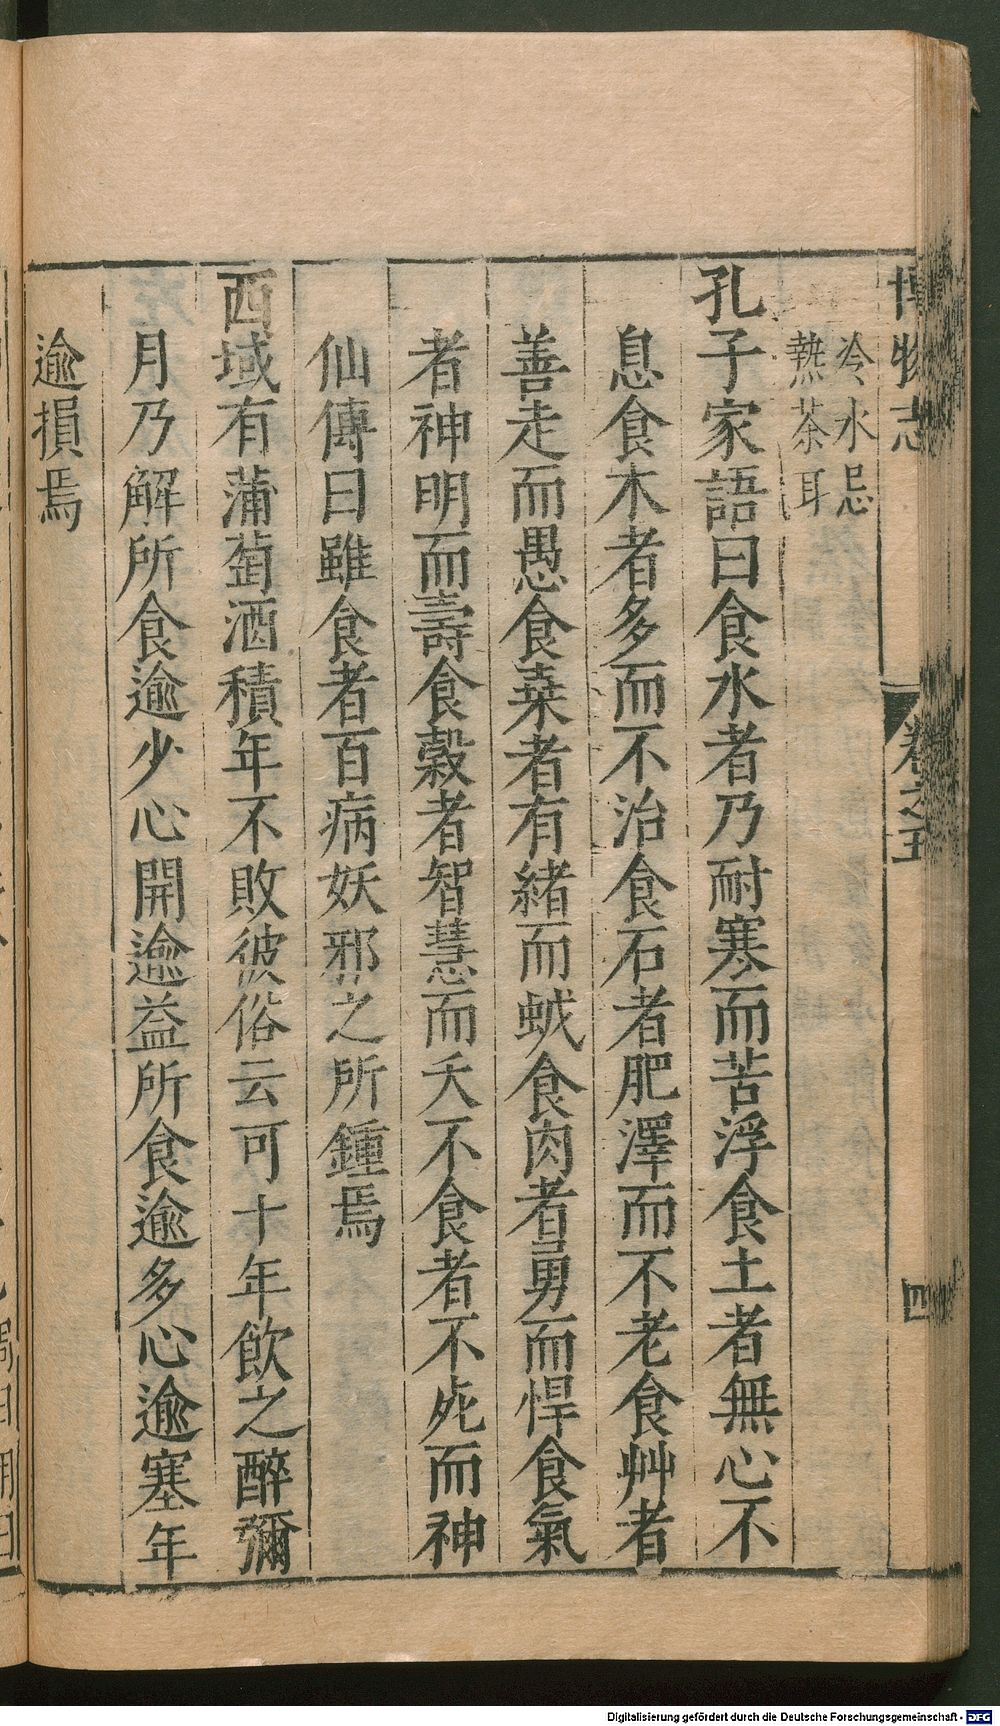 博物志 卷之五 四
冷水忌
熱茶耳
孔子家語曰食水者乃耐寒而苦浮食土者無心不
息食木者多而不治食石者肥澤而不老食艸者
善走而愚食桒者有緒而蛾食肉者勇而悍食氣
者神明而壽食穀者智慧而夭不食者不死而神
仙傳曰雖食者百病妖邪之所鍾焉
西域有蒲萄酒積年不敗彼俗云可十年飲之醉彌
月乃解所食逾少心開逾益所食逾多心逾塞年
逾損焉
Digitalisierung gefördert durch die Deutsche Forschungsgemeinschaft - DFG